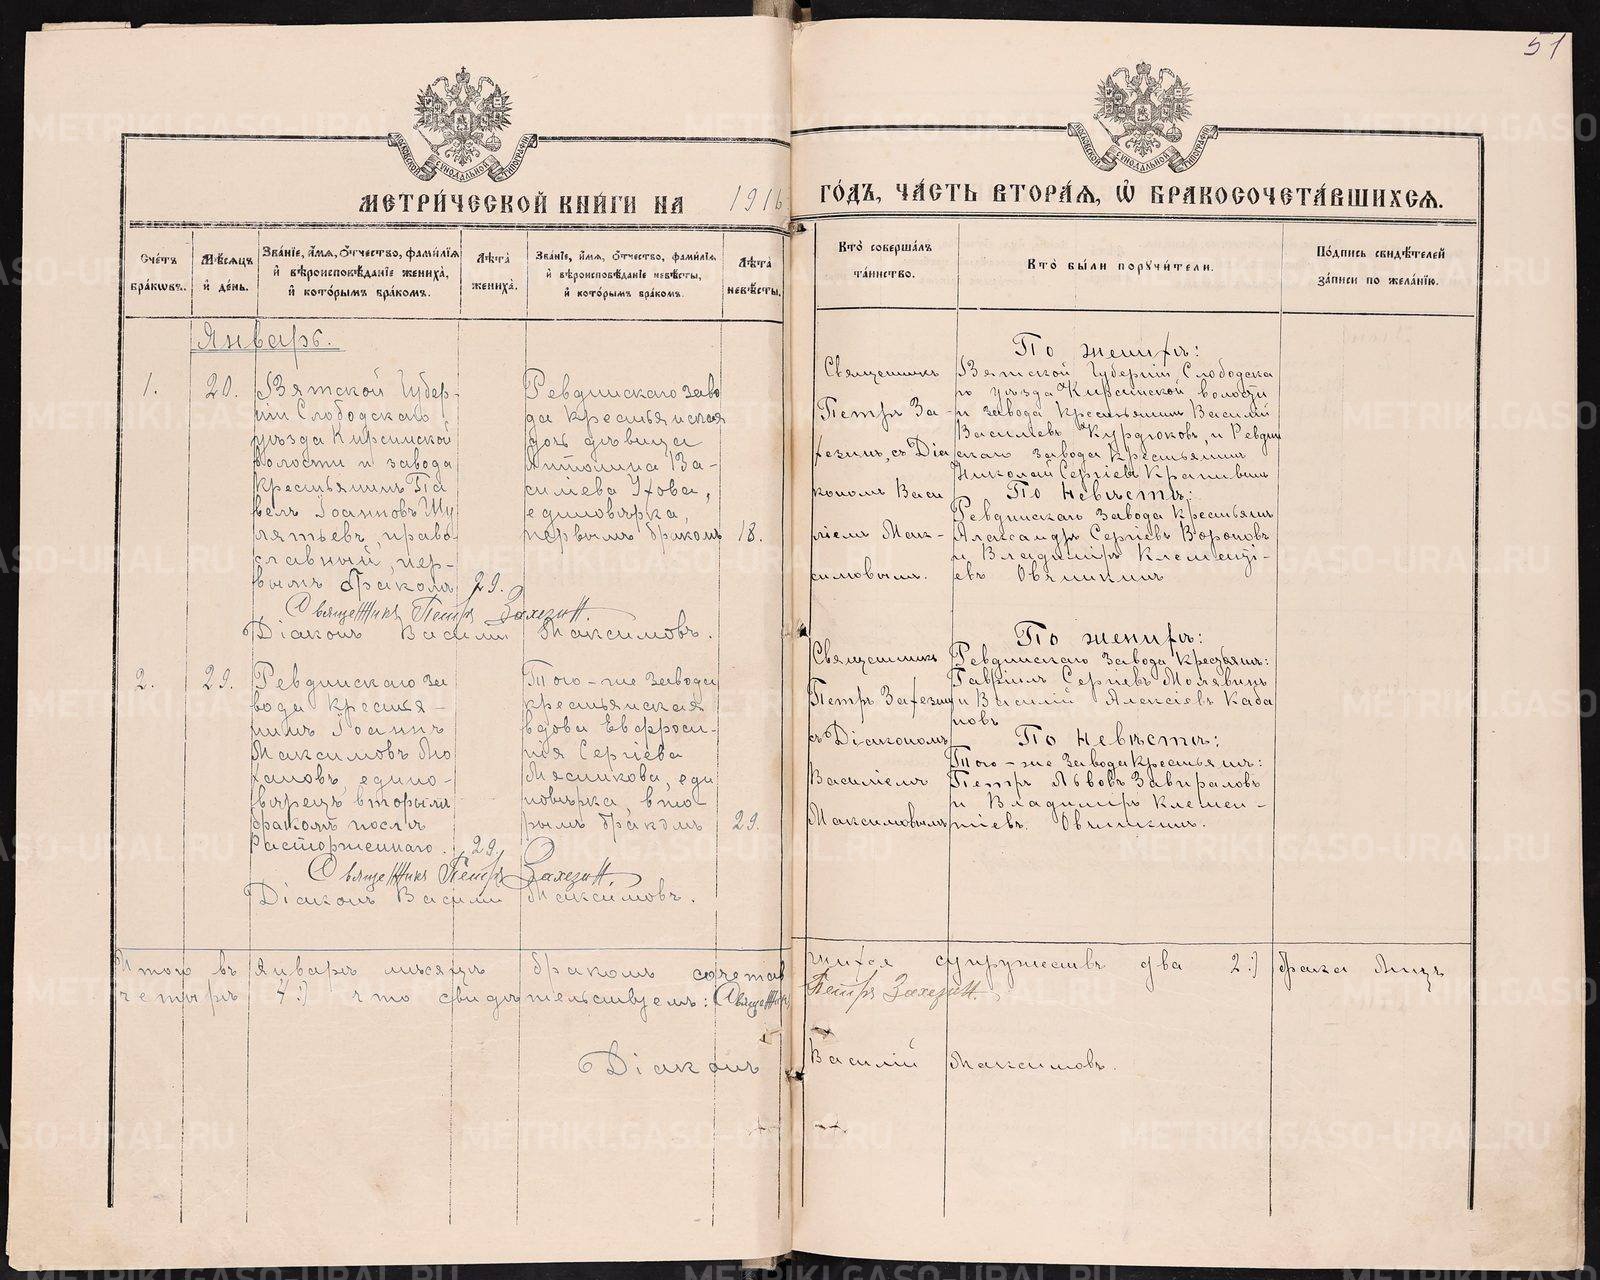 51
МОСКОВСКОЙ СУНОДАЛЬНОЙ ТИПОГРАФІИ
МОСКОВСКОЙ СУНОДАЛЬНОЙ ТИПОГРАФІИ
МЕТРИ́ЧЕСКОЙ КНИ́ГИ НА 1916
ГО́ДЪ, ЧА́СТЬ ВТОРА́Я, Ѡ҆ БРАКОСОЧЕТА́ВШИХСЯ.
Сче́тъ бра́кѡвъ.
Мѣ́сяцъ и҆ де́нь.
Зва́нїе, и҆́мя, ѻ҆́тчество, фами́лїя и҆ вѣроисповѣ́данїе жениха̀, и҆ кото́рымъ бра́комъ.
Лѣ́та жениха̀.
Зва́нїе, и҆́мя, ѻ҆́тчество, фами́лїя и҆ вѣроисповѣ́данїе невѣ́сты, и҆ кото́рымъ бра́комъ.
Лѣ́та невѣ́сты.
Кто̀ соверша́лъ та́инство.
Кто̀ бы́ли поручи́тели.
По́дпись свидѣ́телей за́писи по жела́нїю.
Январь.
1.
20.
Вятской Губер-
ніи Слободскаго
уѣзда Кирсинской
волости и завода
крестьянинъ Па
велъ Іоанновъ Шу
лятьевъ, право
славный, пер-
вымъ бракомъ
29.
Ревдинскаго заво
да крестьянская
дочь дѣвица
Антонина Ва-
силіева Ухова,
единовѣрка,
первымъ бракомъ
18.
Священникъ
Петръ За-
хезинъ, съ Діа
кономъ Васи
ліемъ Мак-
симовымъ.
По женихѣ:
Вятской Губерніи Слободска
го уѣзда Кирсинской волости
и завода крестьянинъ Василій
Василіевъ Курдюковъ, и Ревдин
скаго завода крестьянинъ
Николай Сергіевъ Крапивинъ
По невѣстѣ:
Ревдинскаго завода крестьяне
Александръ Сергіевъ Вороновъ
и Владиміръ Клементі-
евъ Овчинкинъ
Священникъ Петръ Захезинъ.
Діаконъ Василій Максимовъ.
2.
29.
Ревдинскаго за
вода кресть-
нинъ Іоаннъ
Максимовъ По
таповъ, едино-
вѣрецъ, вторымъ
бракомъ послѣ
расторженнаго.
29.
Того-же завода
крестьянская
вдова Евфроси-
нія Сергіева
Мясникова, еди
новѣрка, вто-
рымъ бракомъ
29.
Священникъ
Петръ Захезинъ
съ Діакономъ
Василіемъ
Максимовымъ
По женихѣ:
Ревдинскаго завода крестьяне:
Гавріилъ Сергіевъ Молявинъ
и Василій Алексіевъ Каба
новъ
По невѣстѣ:
Того-же завода крестьяне:
Петръ Львовъ Завираловъ
и Владиміръ Клемен-
тіевъ Овчинкинъ.
Священникъ Петръ Захезинъ.
Діаконъ Василій Максимовъ.
Итого въ Январѣ мѣсяцѣ бракомъ сочетав
шихся супружествъ два 2:) брака лицъ
четыре 4:) что свидѣтельствуемъ: Священникъ
Петръ Захезинъ.
Діаконъ Василій Максимовъ.
METRIKI.GASO-URAL.RU